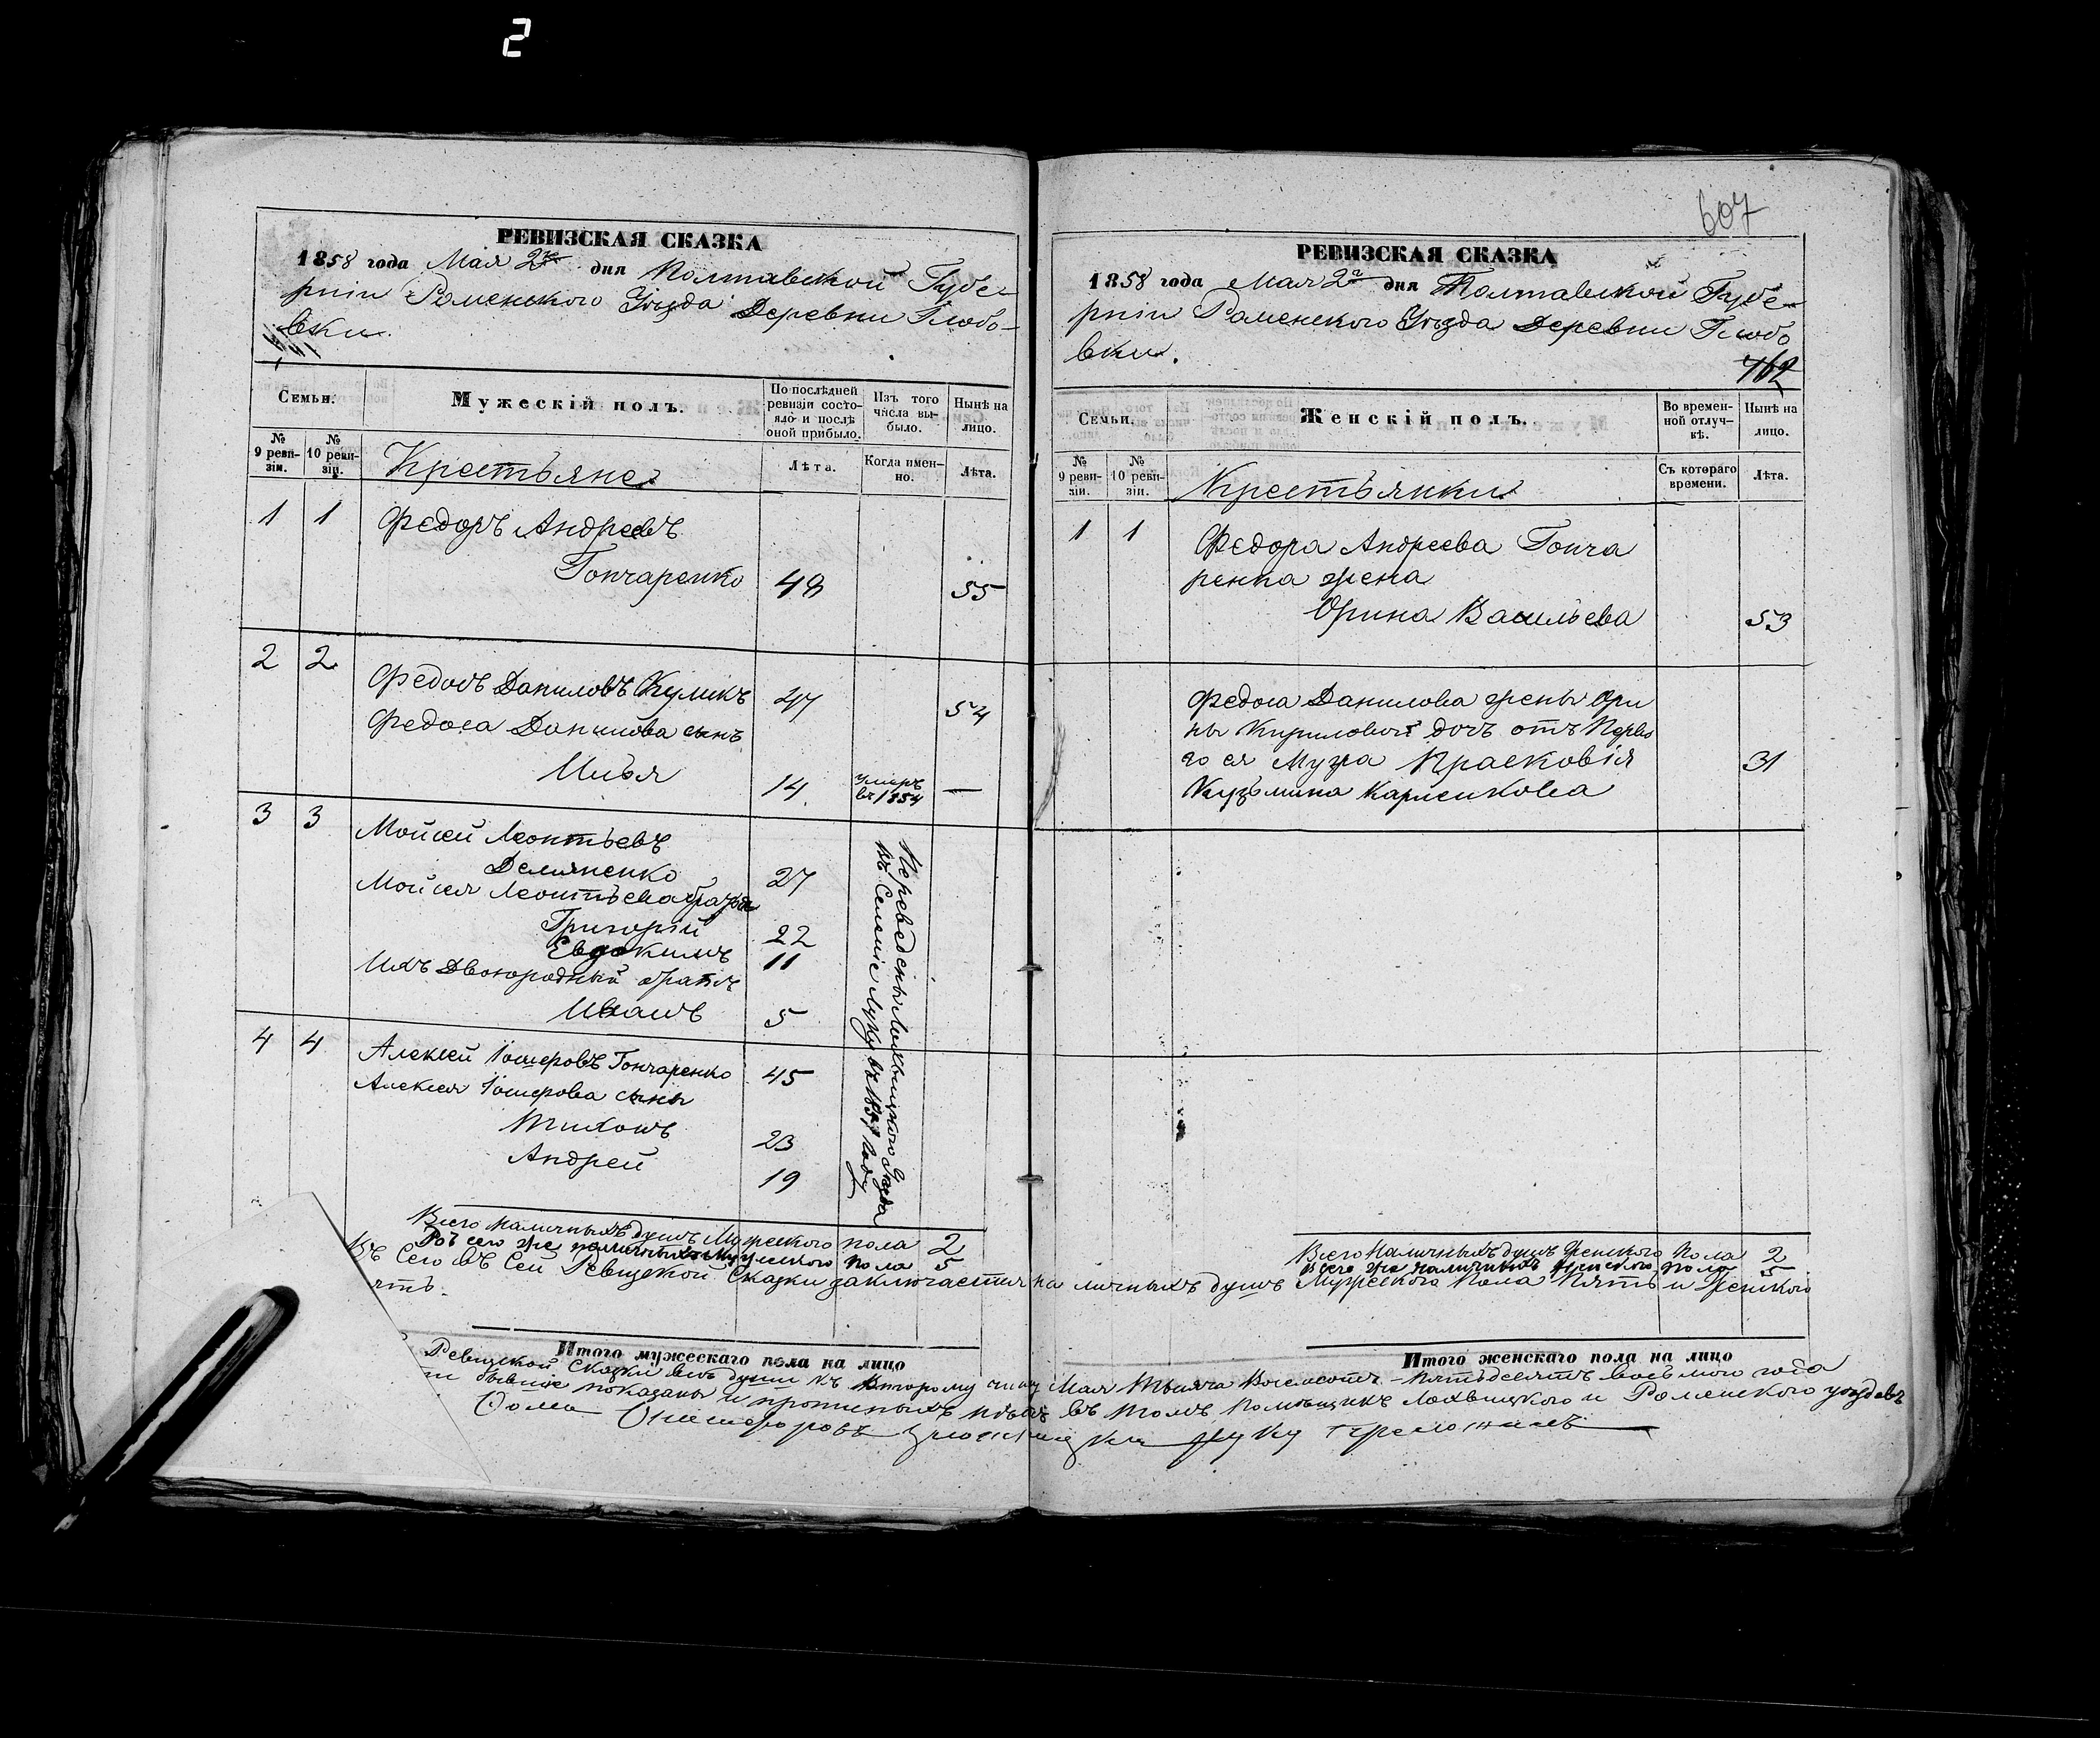 2
РЕВИЗСКАЯ СКАЗКА
1858 года Мая 2го дня Полтавской Губе-
рніи Роменского Уѣзда Деревни Глобо-
вки.
Семьи.
Мужескій полъ.
По послѣдней ревизіи состояло и послѣ оной прибыло.
Изъ того числа выбыло.
Нынѣ на лицо.
№ 9 ревизіи.
№ 10 ревизіи.
Крестьяне
Лѣта.
Когда именно.
Лѣта.
1 1 Федоръ Андреевъ
Гончаренко 48 55
2 2 Федосъ Даниловъ Куликъ 47 54
Федоса Данилова сынъ
Илья 14 умеръ въ 1854 —
3 3 Мойсей Леонтьевъ
Демяненко 27
Мойсея Леонтьева братья
Григорій 22
Евдокимъ 11
Ихъ Двоюродный братъ
Иванъ 5
Переведены Лохвицкого Уѣзда
въ Селеніе Луку въ году
4 4 Алексей Гончаренко 45
Алексея сыны
Тихонъ 23
Андрей 19
Всего наличныхъ душъ Мужеского пола 2
Всего же наличныхъ Мужеского пола 5
607
РЕВИЗСКАЯ СКАЗКА
1858 года Мая 2го дня Полтавской Губе-
рніи Роменского Уѣзда Деревни Глобо
вки.
762
Семьи.
Женскій полъ.
Во временной отлучкѣ.
Нынѣ на лицо.
№ 9 ревизіи.
№ 10 ревизіи.
Крестьянки
Съ котораго времени.
Лѣта.
1 1 Федора Андреева Гонча
ренка жена
Орина Васильева 53
Федоса Данилова жены Ори
ны Кириловой дочь отъ Перво
го ея Мужа Прасковія 31
Кузьмина Карпенкова
Всего Наличныхъ душъ Женского Пола 2
Всего же наличныхъ Женского пола 5
Сего въ Сей Ревизской Сказки заключается на личныхъ душъ Мужеского Пола Пять и Женского
ять.
Итого мужескаго пола на лицо
Итого женскаго пола на лицо
Ревизской Сказки всѣ души къ Второму числу Мая Тысяча Восемсотъ Пятьдесятъ восьмого года
бывшіе показаны и въ томъ Помѣщикъ Лохвицкого и Роменского уѣздовъ
руку приложилъ